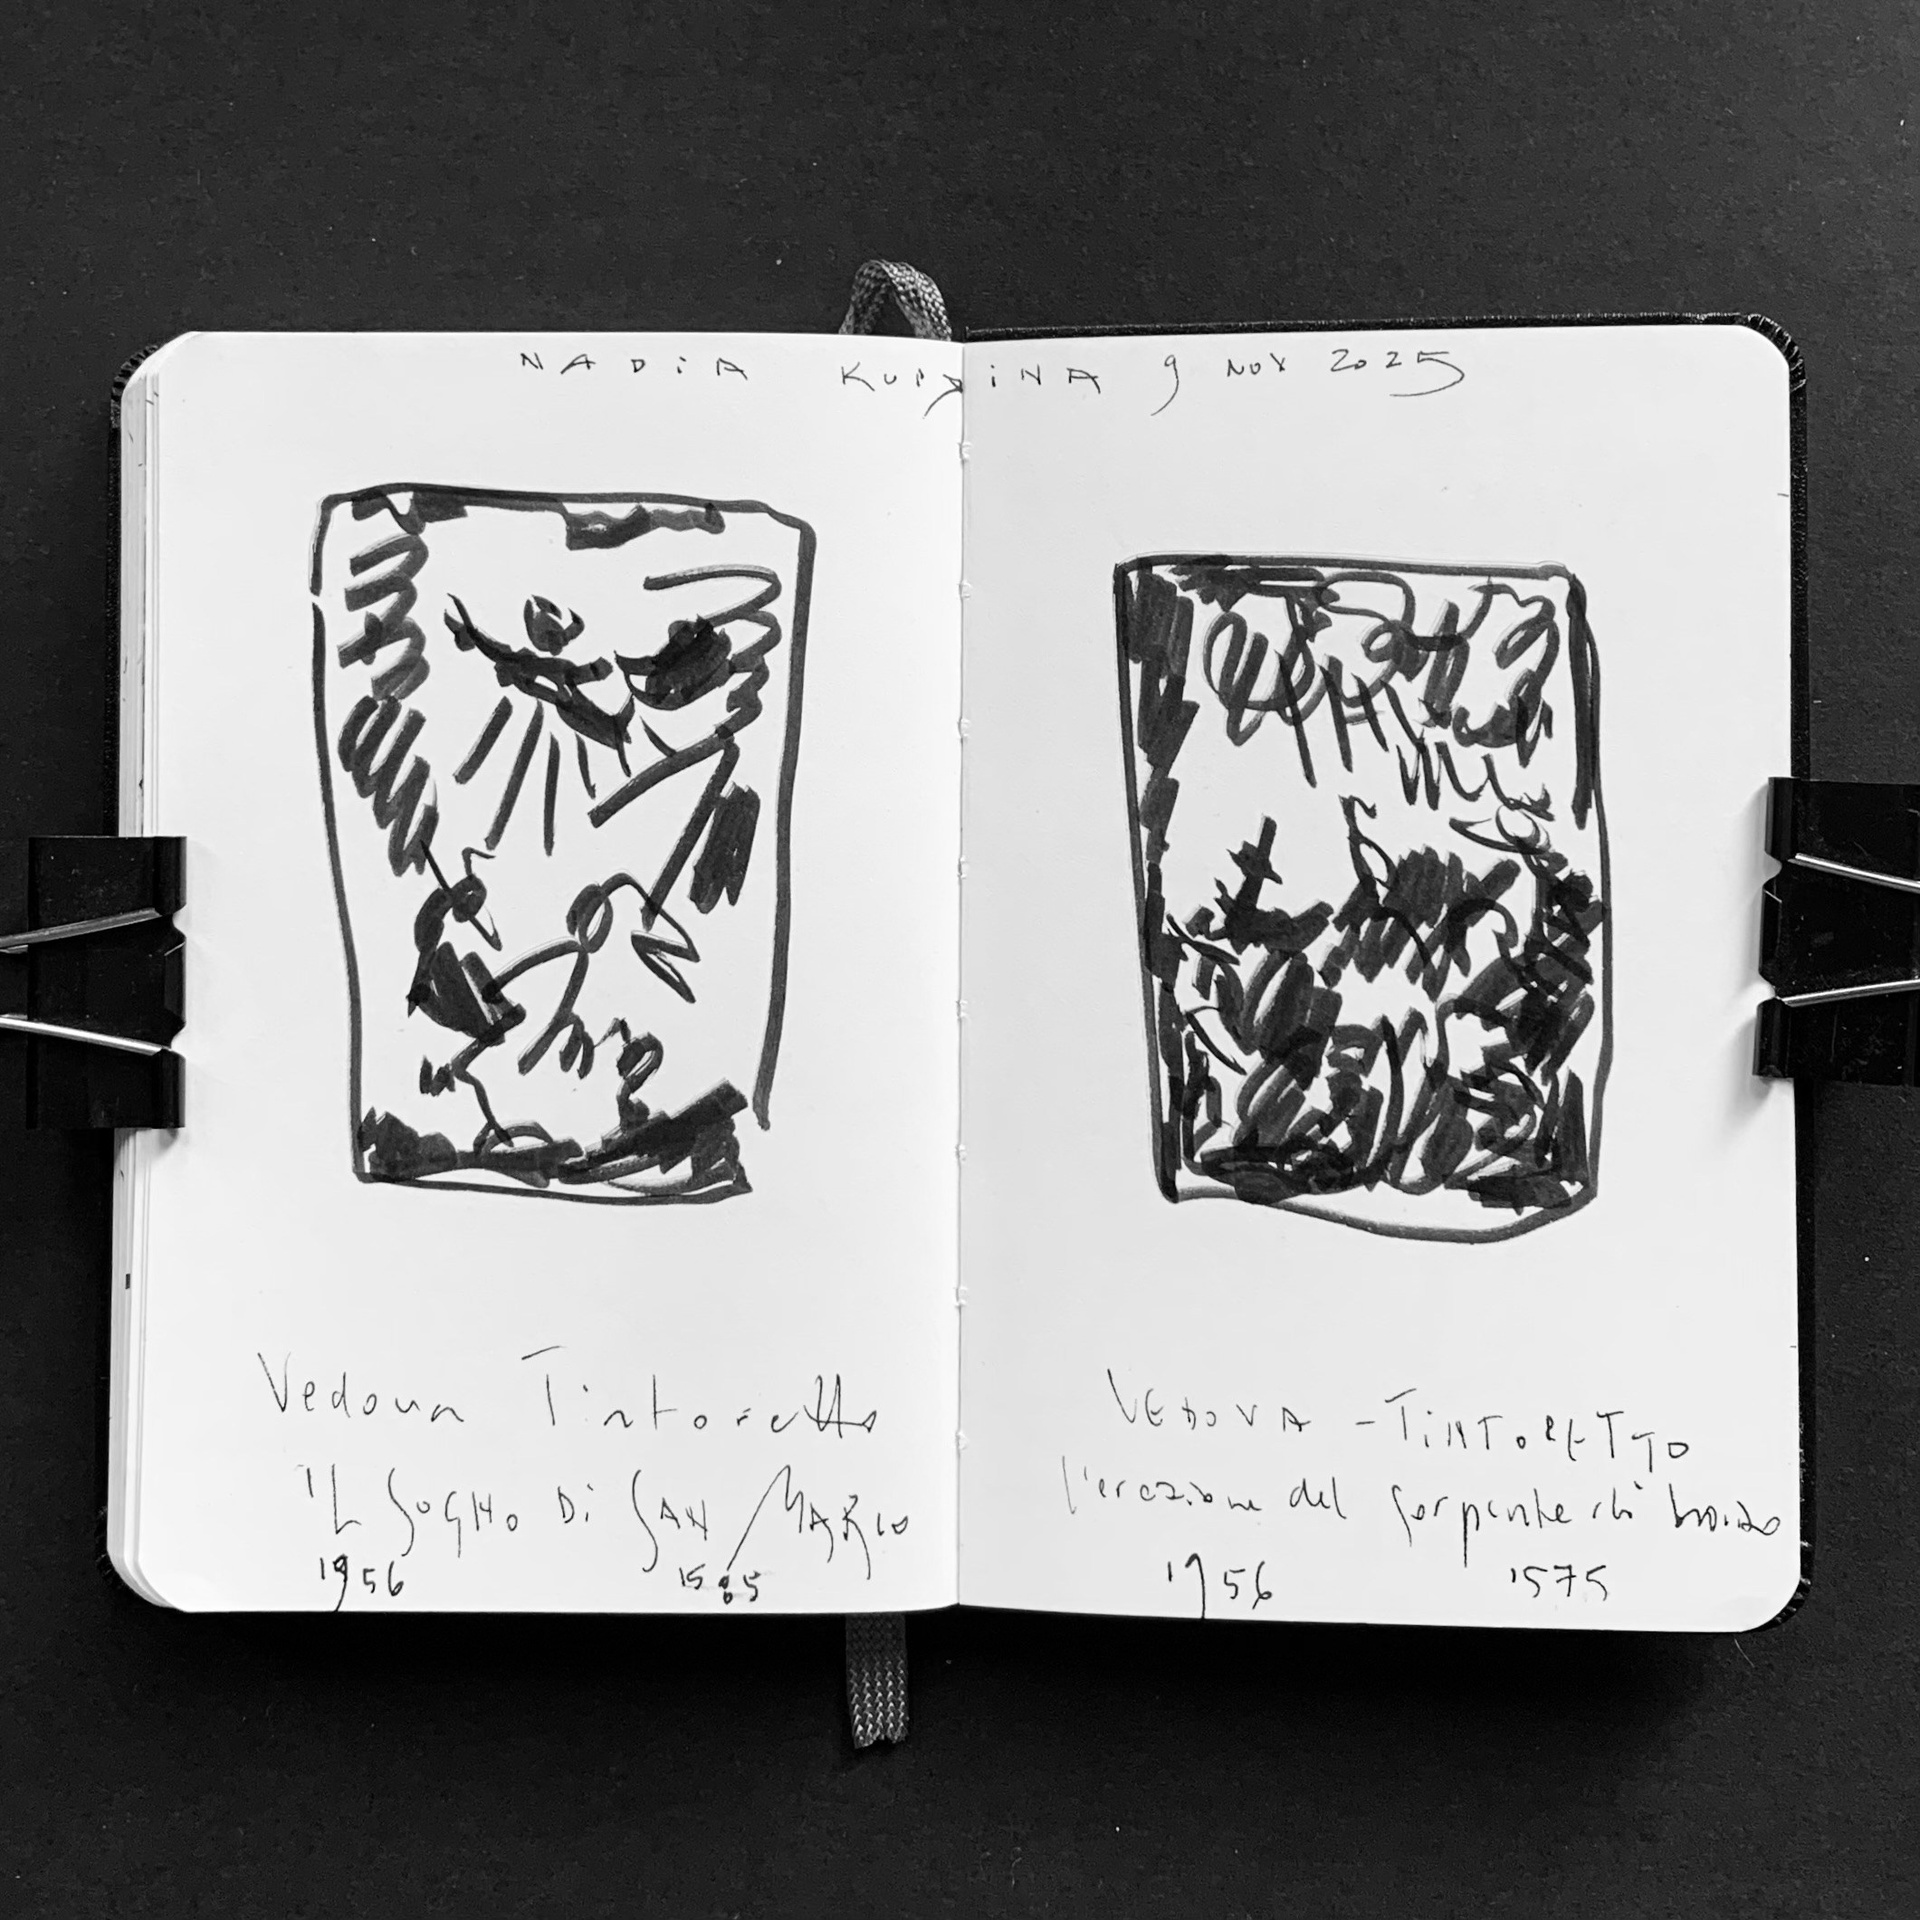 NADiA KUPRiNA 9 NOV 2025
Vedova Tintoretto
IL SOGNO Di SAN MARCO
1956 1585
VEDOVA - TiNTORETTO
l'erezione del serpente di bronzo
1956 1575